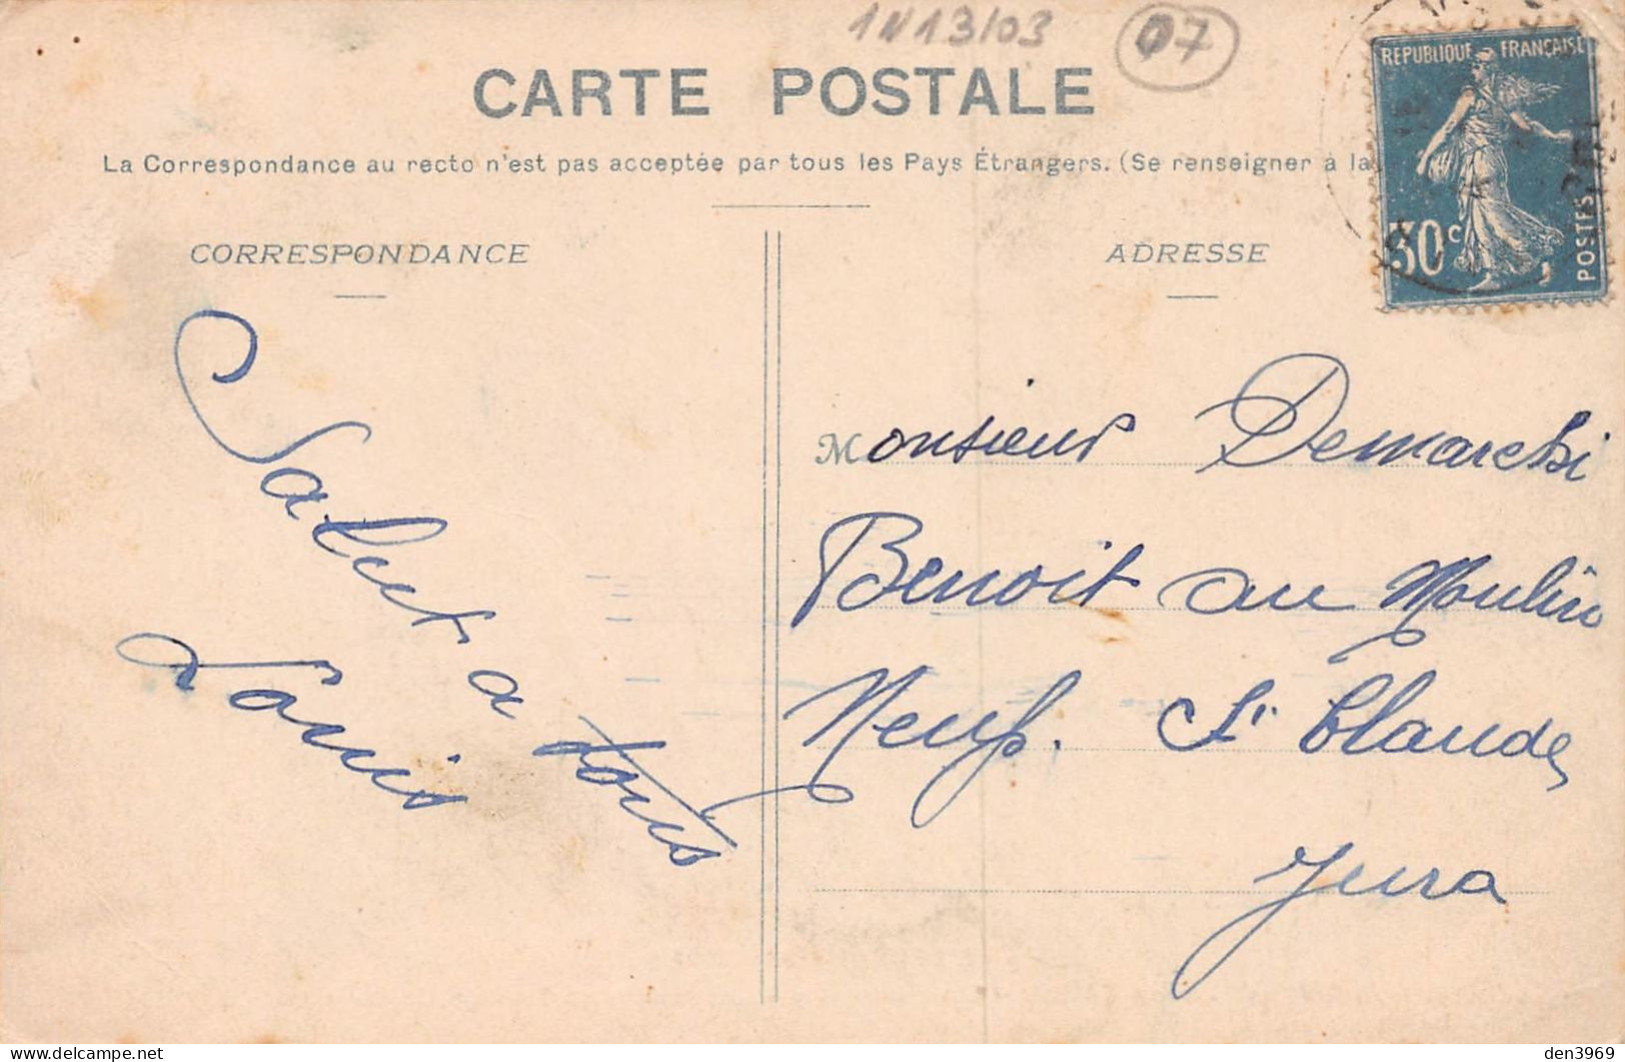 1N13/03
07
CARTE POSTALE
La Correspondance au recto n'est pas acceptée par tous les Pays Étrangers. (Se renseigner à la
REPUBLIQUE FRANÇAISE
30c
POSTES
CORRESPONDANCE
Salut a tous
Louis
ADRESSE
Monsieur Demarchi
Benoit au Moulin
Neuf. St Claude,
Jura
delcampe.net
den3969